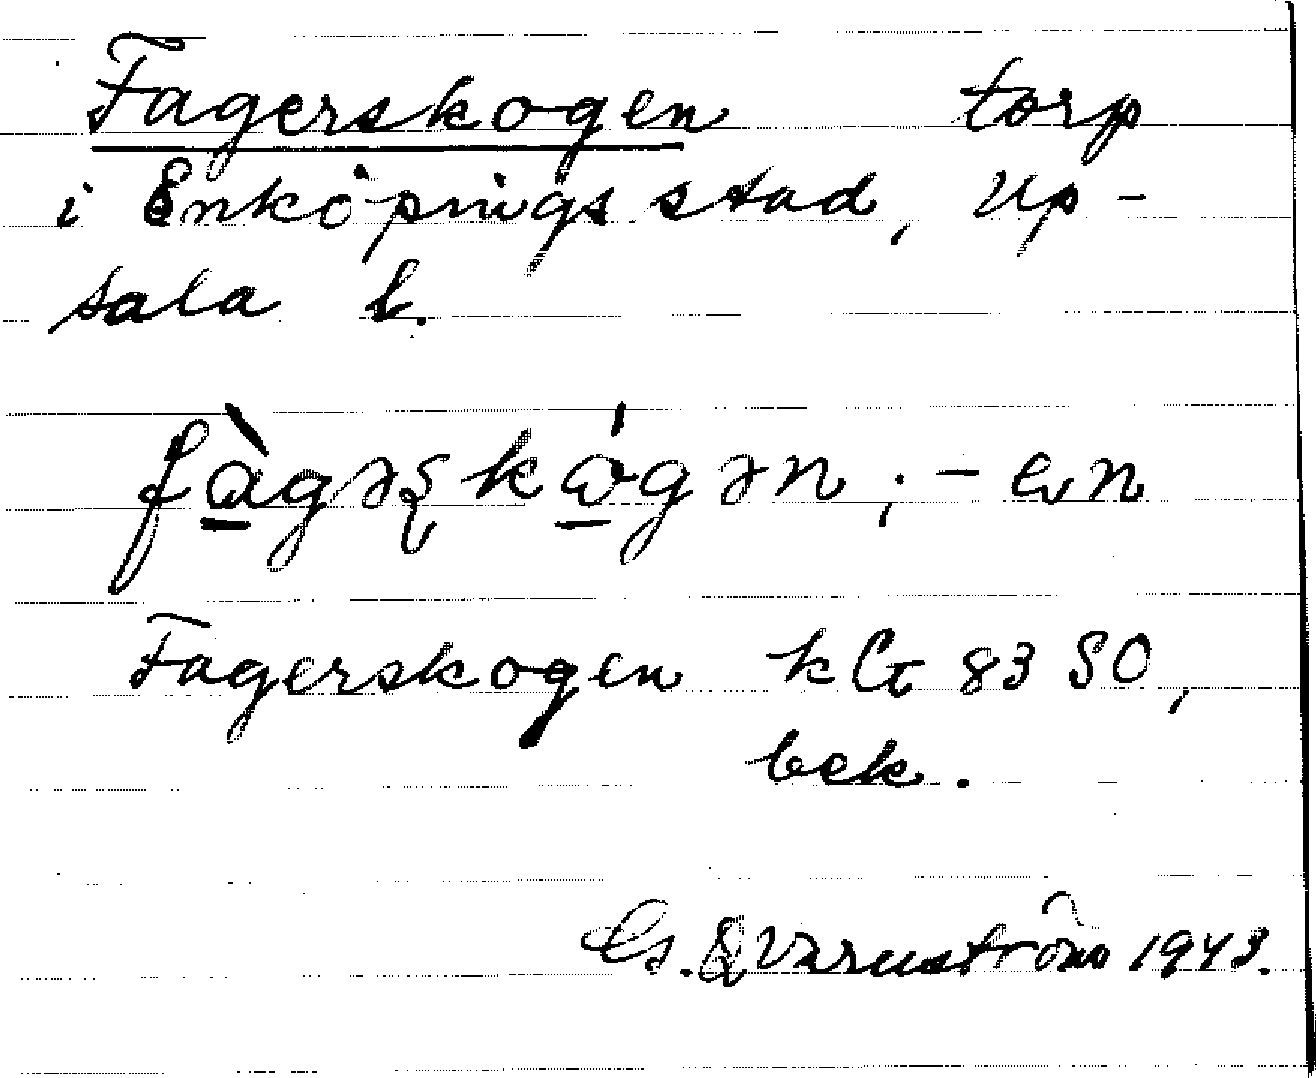 Fagerskogen torp
i Enköpings stad, Up-
sala l.
fàgəʂkógən; -en
Fagerskogen k G 83 SO,
bek.
G. Qvarnström 1943.